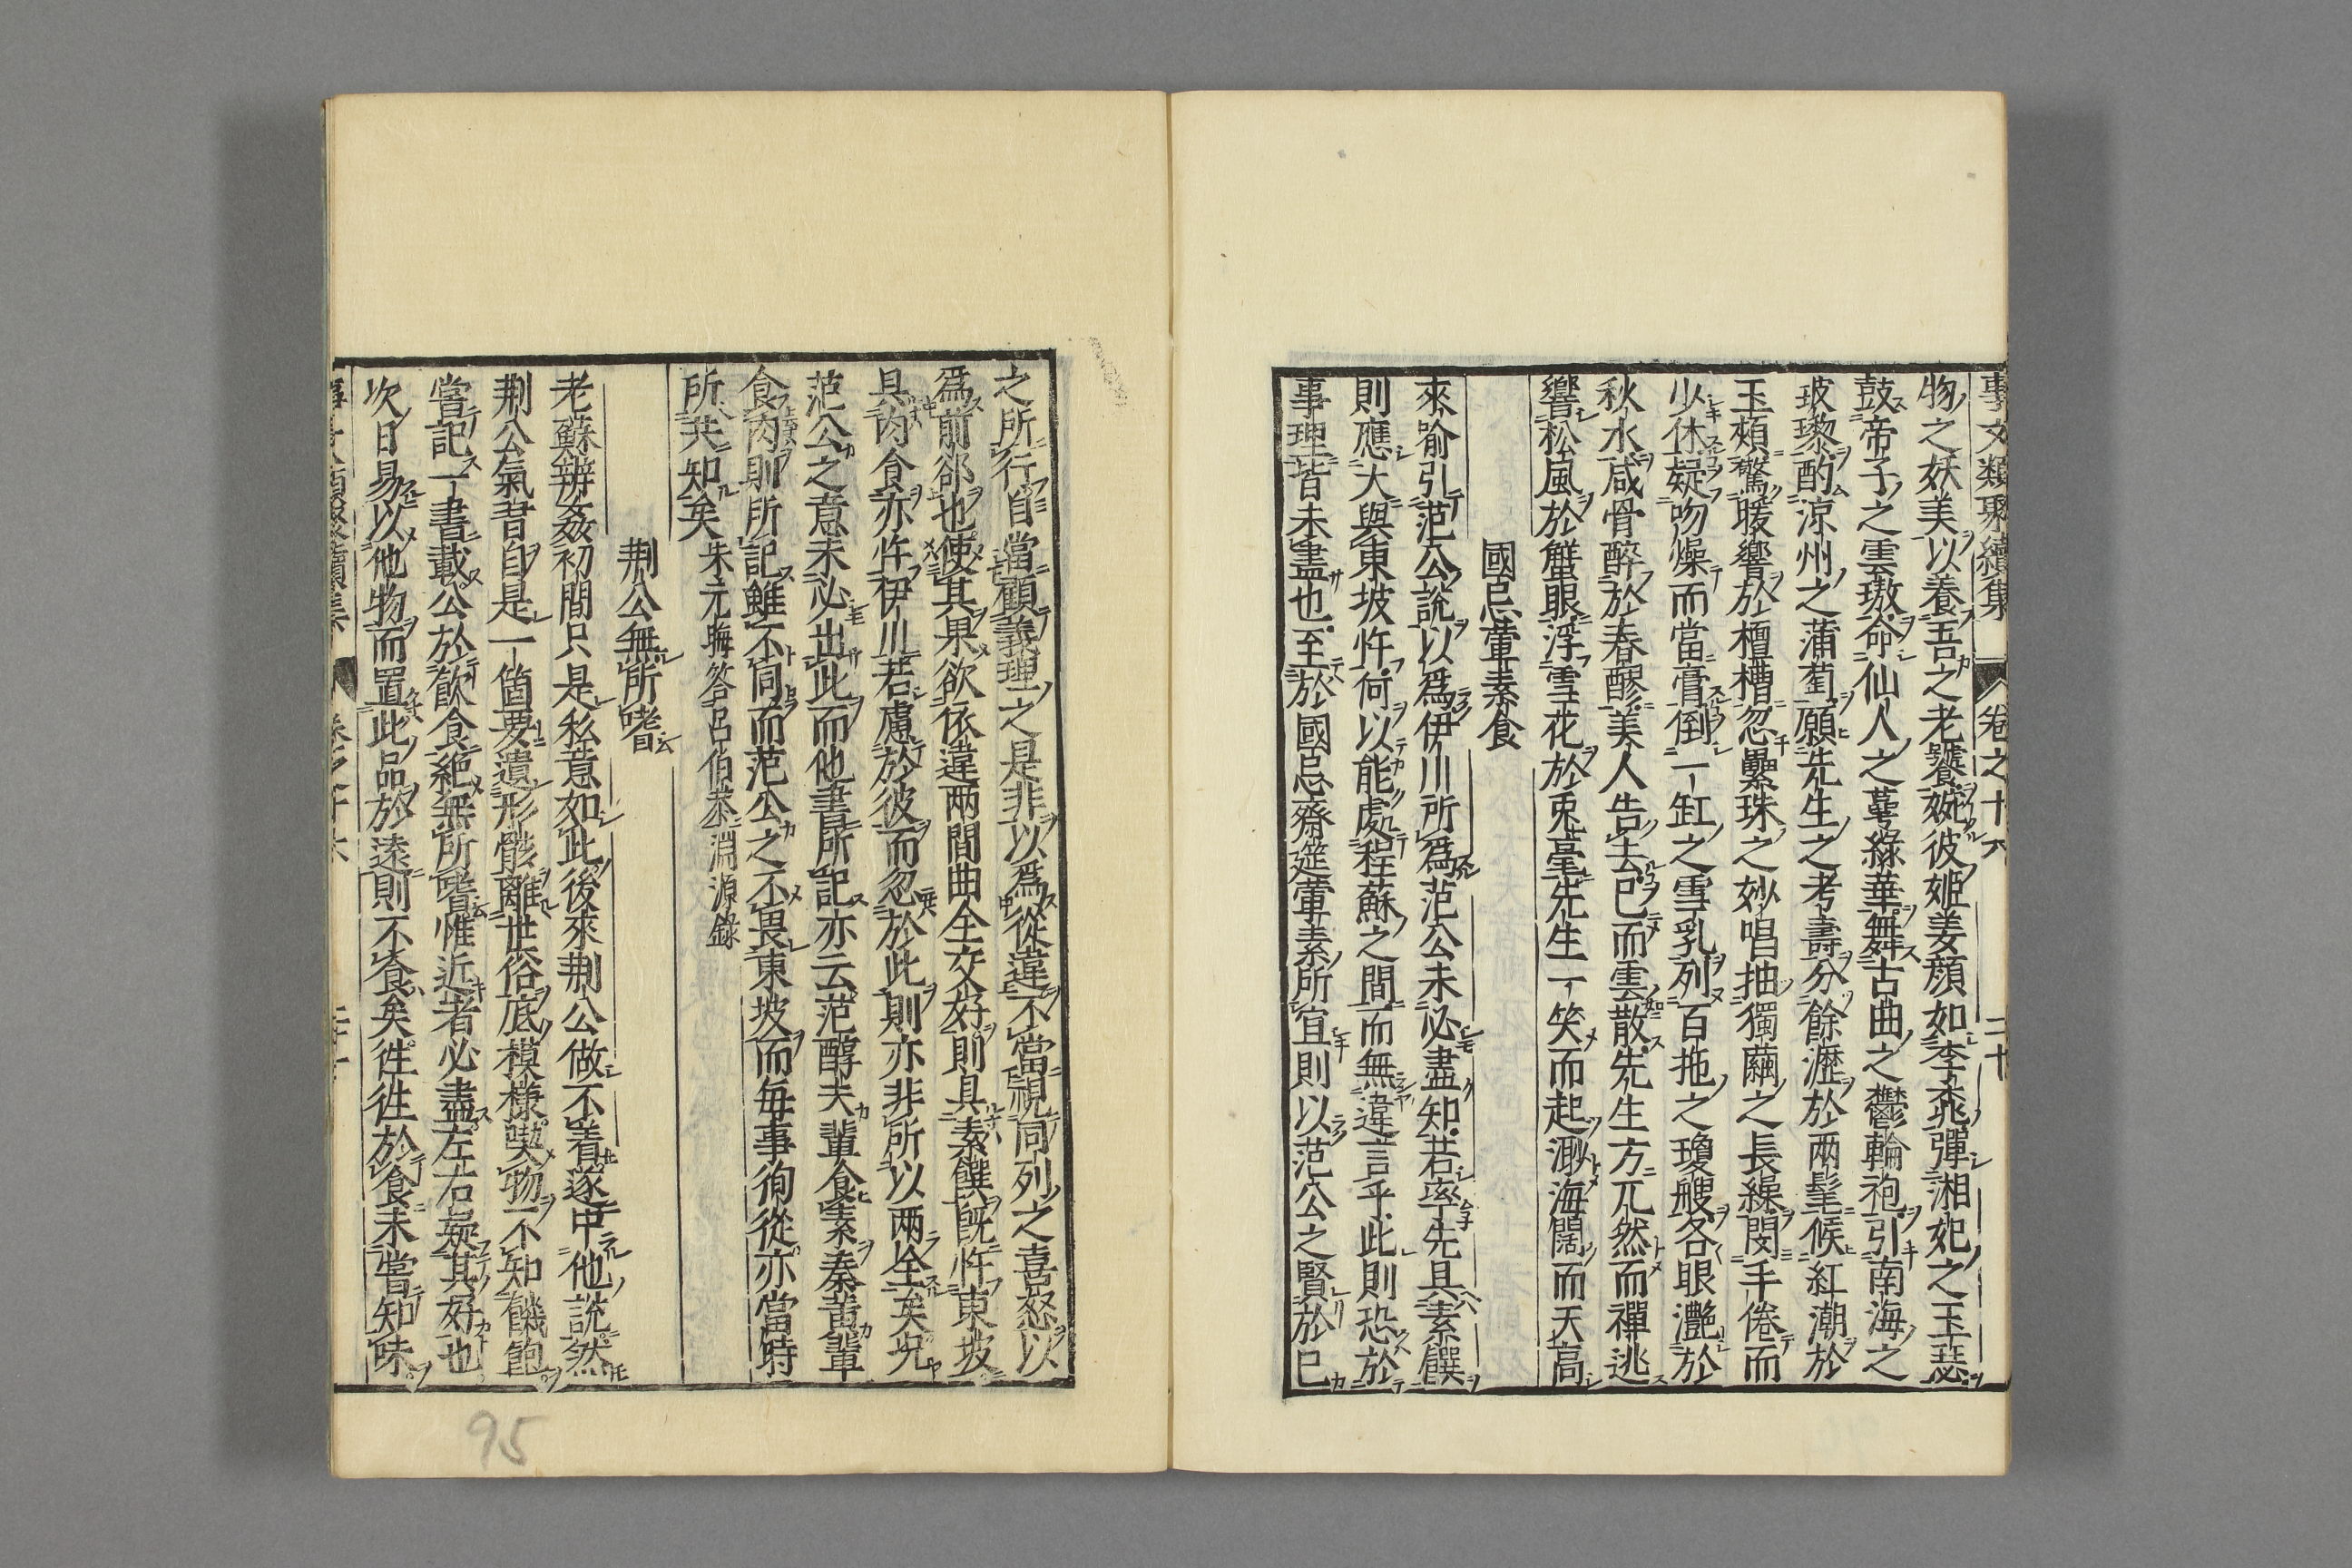 事文類聚續集 卷之十六 二十
物之妖美以養吾之老饕婉彼姬姜顏如李桃彈湘妃之玉瑟
鼓帝子之雲璈命仙人之蕚綠華舞古曲之鬱輪袍引南海之
玻瓈酌涼州之蒲萄願先生之耆壽分餘瀝於兩髦候紅潮於
玉頰驚暖響於檀槽忽纍珠之妙唱抽獨繭之長繰閔手倦而
少休疑吻燥而當膏倒一缸之雪乳列百柂之瓊艘各眼灔於
秋水咸骨醉於春醪美人告去已而雲散先生方兀然而禪逃
響松風於蟹眼浮雪花於兎毫先生一笑而起渺海闊而天高
國忌葷素食
來喻引范公說以爲伊川所爲范公未必盡知若率先具素饌
則應大與東坡忤何以能處程蘇之間而無違言乎此則恐於
事理皆未盡也至於國忌齋筵葷素所宜則以范公之賢於己
之所行自當顧義理之是非以爲從違不當視同列之喜怒以
爲前郤也使其果欲依違两間曲全交好則具素饌旣忤東坡
具肉食亦忤伊川若慮於彼而忽於此則亦非所以两全矣况
范公之意未必出此而他書所記亦云范醇夫輩食素秦黃輩
食肉則所記雖不同而范公之不畏東坡而每事徇從亦當時
所共知矣 朱元晦答呂伯恭 淵源錄
荆公無所嗜
老蘇辨姦初間只是私意如此後來荆公做不着遂中他說然
荆公氣習自是一箇要遺形骸離世俗底模樣喫物不知饑飽
嘗記一書載公於飮食絶無所嗜惟近者必盡左右疑其好也
次日易以他物而置此品於遠則不食矣徃徃於食未嘗知味